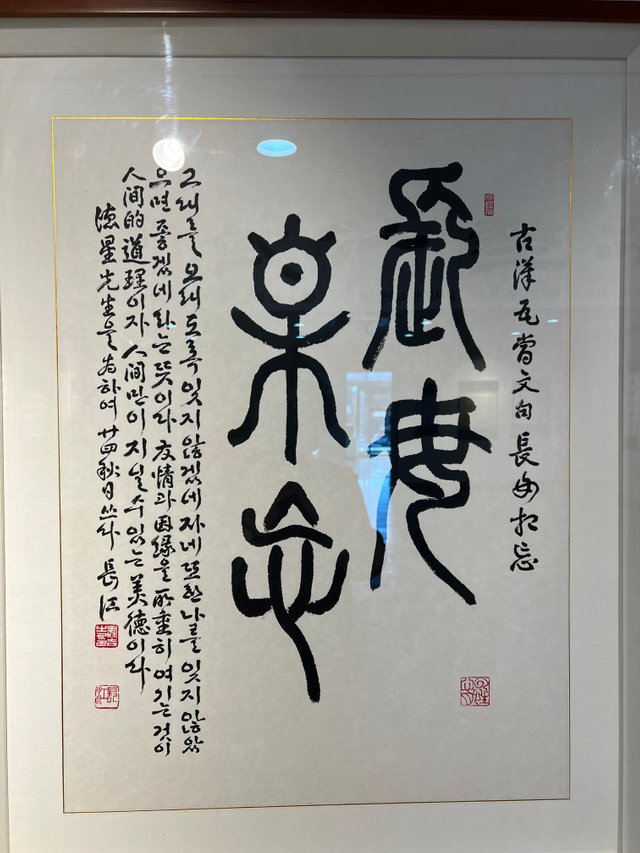 古漢瓦當文句長毋相忘
長毋
相忘
그대를 오래도록 잊지 않겠네 자네 또한 나를 잊지 않았
으면 좋겠네 라는 뜻이라 友情과 因緣을 所重히 여기는 것이
人間的 道理이자 人間만이 지닐 수 있는 美德이라
德星先生을 爲하여 廿四秋日 쓰다 長江